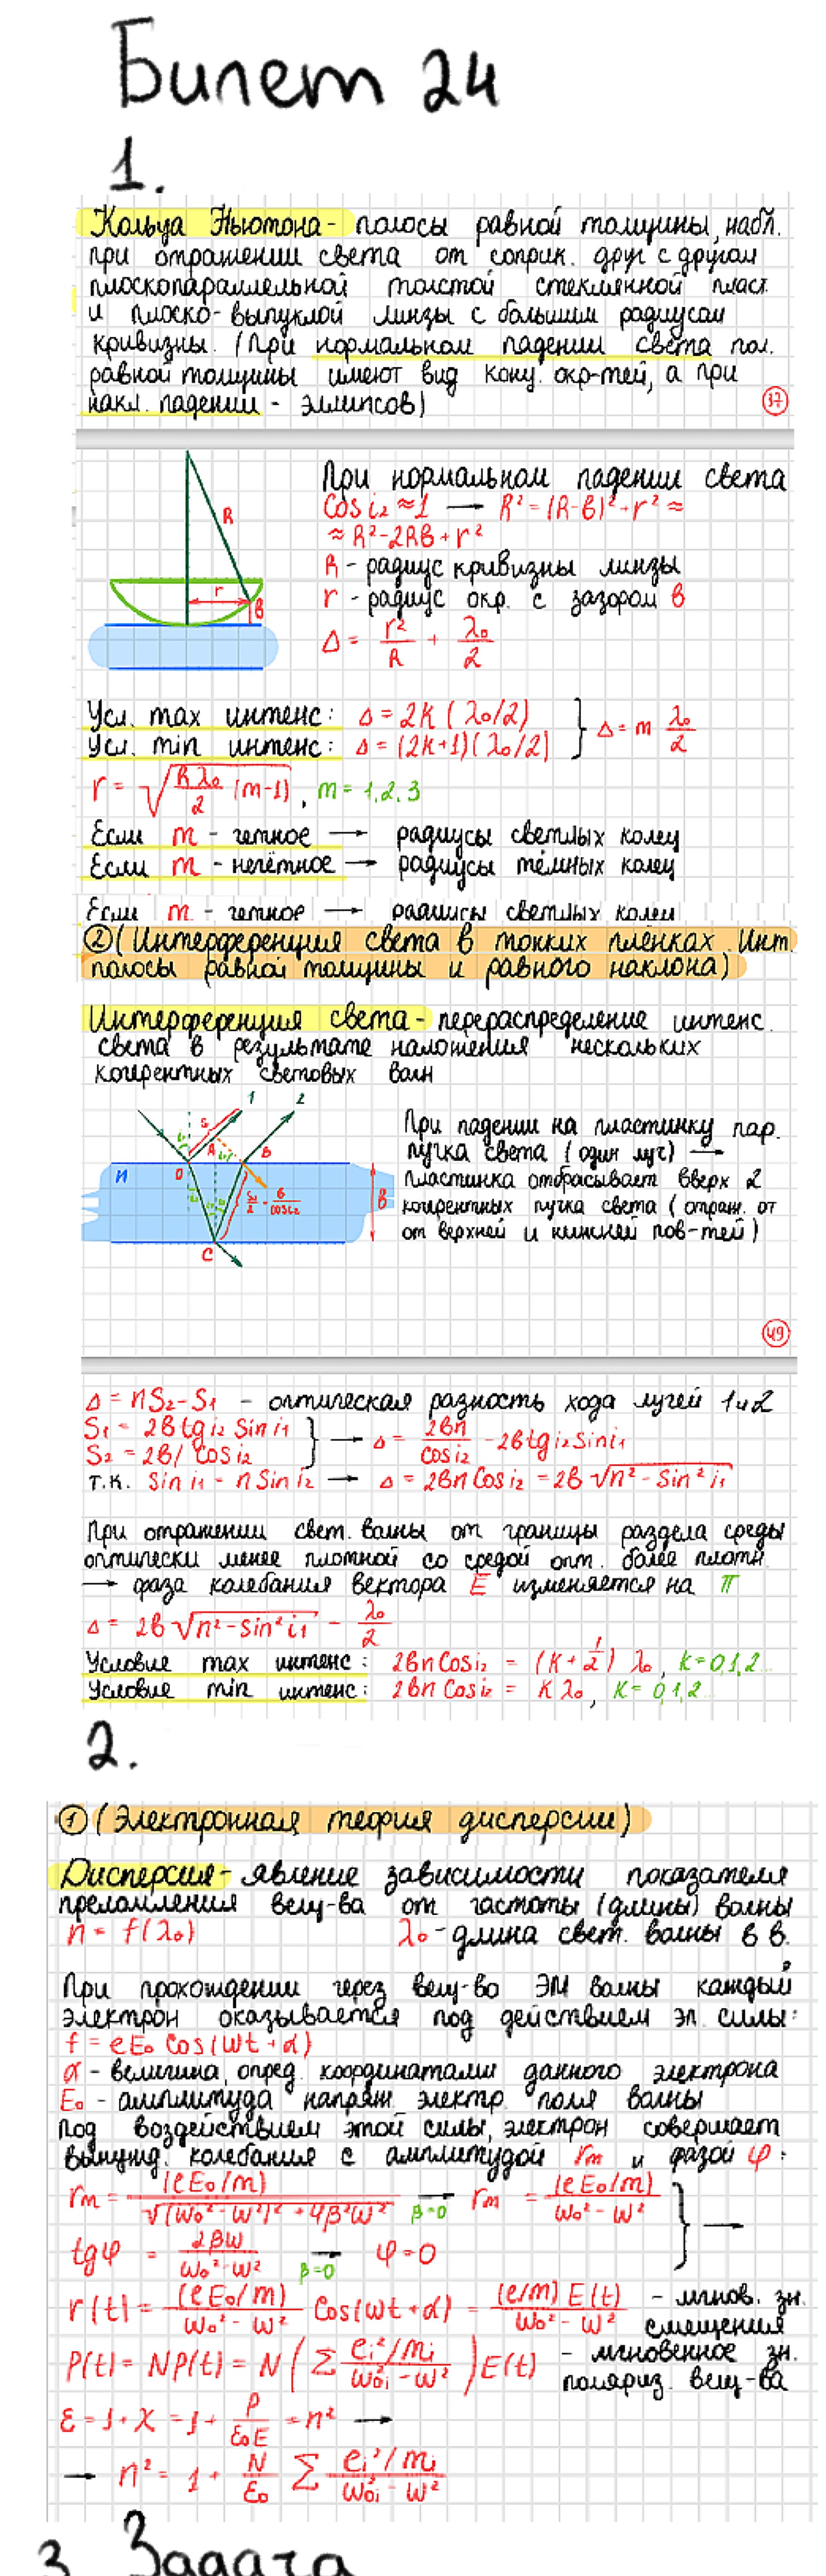 Билет 24
1.
Кольца Ньютона- полосы равной толщины, набл.
при отражении света от соприк. друг с другом
плоскопараллельной толстой стеклянной пласт.
и плоско-выпуклой линзы с большим радиусом
кривизны. (При нормальном падении света пол.
равной толщины имеют вид конц. окр-тей, а при
накл. падении - эллипсов)
37
R
r
b
При нормальном падении света
Cos i₂ ≈ 1 → R² = (R-b)² + r² ≈
≈ R² - 2Rb + r²
R - радиус кривизны линзы
r - радиус окр. с зазором b
Δ = r²/R + λ₀/2
Усл. max интенс: Δ = 2k (λ₀/2)
Усл. min интенс: Δ = (2k+1)(λ₀/2) } Δ = m λ₀/2
r = √(Rλ₀/2 (m-1)), m = 1,2,3
Если m - четное → радиусы светлых колец
Если m - нечётное → радиусы тёмных колец
Если m - четное → радиусы светлых колец
② (Интерференция света в тонких плёнках. Инт.
полосы равной толщины и равного наклона)
Интерференция света - перераспределение интенс.
света в результате наложения нескольких
когерентных световых волн
1 2
S₁
A B
O
n
S₂/2 = b/cos i₂
b
C
При падении на пластинку пар.
пучка света (один луч) →
пластинка отбрасывает вверх 2
когерентных пучка света (отраж. от
от верхней и нижней пов-тей)
49
Δ = nS₂ - S₁ - оптическая разность хода лучей 1 и 2
S₁ = 2b tg i₂ Sin i₁
S₂ = 2b / Cos i₂ } → Δ = 2bn/Cos i₂ - 2b tg i₂ sin i₁
т.к. Sin i₁ = n Sin i₂ → Δ = 2bn Cos i₂ = 2b √(n² - Sin² i₁)
При отражении свет. волны от границы раздела среды
оптически менее плотной со средой опт. более плотн.
→ фаза колебания вектора E изменяется на π
Δ = 2b √(n² - sin² i₁) - λ₀/2
Условие max интенс: 2bn Cos i₂ = (k + 1/2) λ₀, k = 0,1,2...
Условие min интенс: 2bn Cos i₂ = k λ₀, k = 0,1,2...
2.
① (Электронная теория дисперсии)
Дисперсия - явление зависимости показателя
преломления вещ-ва от частоты (длины) волны
n = f(λ₀) λ₀ - длина свет. волны в в.
При прохождении через вещ-во ЭМ волны каждый
электрон оказывается под действием эл. силы:
f = eE₀ Cos(ωt + α)
α - величина, опред. координатами данного электрона
E₀ - амплитуда напряж. электр. поля волны
Под воздействием этой силы, электрон совершает
вынужд. колебания с амплитудой rm и фазой φ:
rm = (eE₀/m) / √((ω₀² - ω²)² + 4β²ω²) →β=0 rm = (eE₀/m) / (ω₀² - ω²)
tgφ = 2βω / (ω₀² - ω²) →β=0 φ = 0 } →
r(t) = (eE₀/m) / (ω₀² - ω²) Cos(ωt + α) = (e/m) E(t) / (ω₀² - ω²) - мгнов. зн. смещения
P(t) = NP(t) = N (Σ eᵢ²/mᵢ / (ω₀ᵢ² - ω²)) E(t) - мгновенное зн. поляриз. вещ-ва
ε = 1 + χ = 1 + P/ε₀E = n² →
→ n² = 1 + N/ε₀ Σ eᵢ²/mᵢ / (ω₀ᵢ² - ω²)
3. Задача